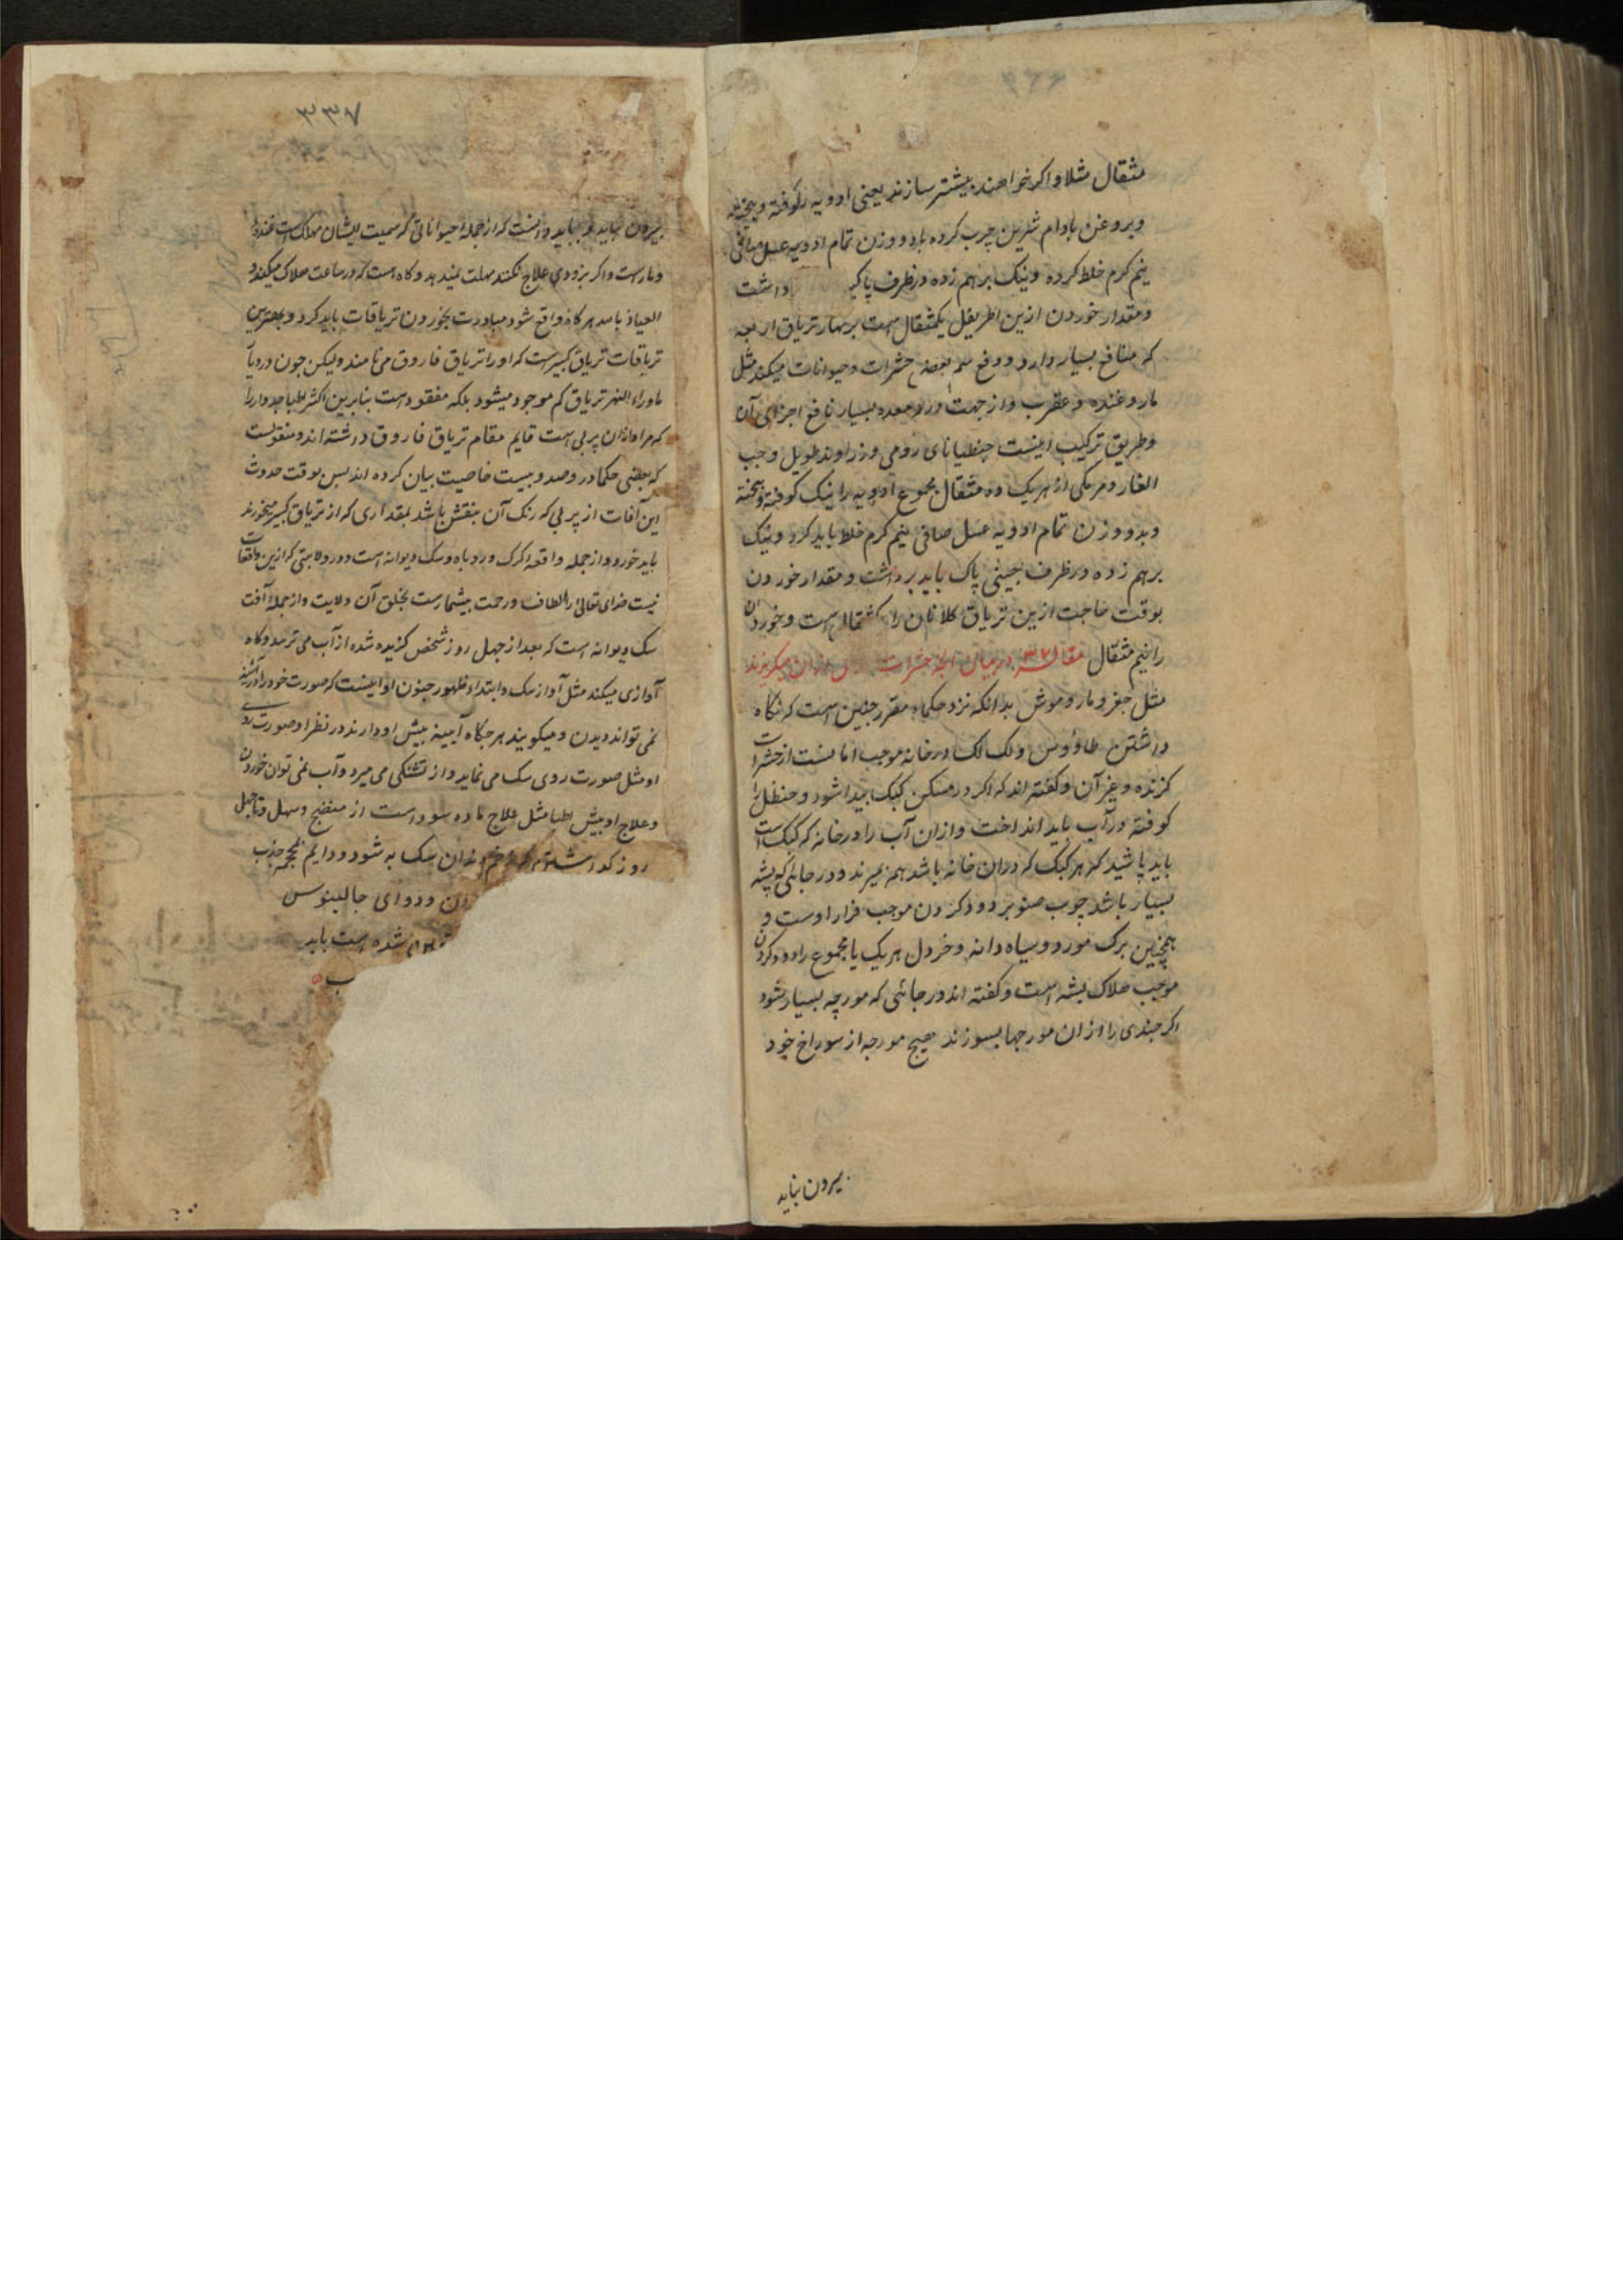 مثقال مثلا و اکر خواهند بیشتر سازند یعنی ادویه را کوفته و بیخته
و بروغن بادام شیرین چرب کرده با دو وزن تمام ادویه عسل صافی
نیم کرم خلط کرده و نیک برهم زده در ظرف پا داشت
و مقدار خوردن ازین اطریفل یکمثقال است تریاق اربعه
که منافع بسیار دارد و دفع سم بعضی حشرات و حیوانات میکند مثل
مار و غنده و عقرب و از جهت درد معده بسیار نافع اجزای آن
و طریق ترکیب اینست جنطیانای رومی و زراوند طویل و حب
الغار و مرمکی از هر یک ده مثقال مجموع ادویه را نیک کوفته و بیخته
و بدو وزن تمام ادویه عسل صافی نیم کرم خلط باید کرد و نیک
برهم زده در ظرف چینی پاک باید برداشت و مقدار خوردن
بوقت حاجت ازین تریاق کلانان را یکمثقال است و خوردان
را نیم مثقال مقاله ۳۷ در بیان آنکه حشرات ازان میکریزند
مثل جغز و مار و موش بدانکه نزد حکماء مقرر چنین است که نکاه
داشتن طاؤوس و لک لک در خانه موجب امانست از حشرات
کزنده و غیر آن و کفته اند که اکر در مسکن کیک پیدا شود و حنظل را
کوفته در آب باید انداخت و ازان آب را در خانه که کیک است
باید پاشید که هر کیک که دران خانه باشد همه بمیرند و در جائی که پشه
بسیار باشد چوب صنوبر دود کردن موجب فرار اوست و
همچنین برک مورد و سیاه دانه و خردل هر یک یا مجموع را دود کردن
موجب هلاک پشه است و کفته اند در جائی که مورچه بسیار شود
اکر چندی را ازان مورچها بسوزند هیچ مورچه از سوراخ خود
بیرون نیاید
۳۳۷
بیرون نیاید و بباید دانست که از جمله حیواناتی که سمیت ایشان مهلک است غنده
و مار است و اکر بزودی علاج نکنند مهلت نمیدهد و کاه است که در ساعت هلاک میکند و
العیاذ بالله هر کاه واقع شود مبادرت بخوردن تریاقات باید کرد و بهترین
تریاقات تریاق کبیر است که او را تریاق فاروق می نامند و لیکن چون در دیار
ماوراء النهر تریاق کم موجود میشود بلکه مفقود است بنابرین اکثر اطبا جدوار را
که مراد ازان پربی است قایم مقام تریاق فاروق داشته اند و منقولست
که بعضی حکما در و صد و بیست خاصیت بیان کرده اند پس بوقت حدوث
این آفات از پربی که رنک آن بنفش باشد بمقداری که از تریاق کبیر میخورند
باید خورد و از جمله واقعه کرک و روباه و سک دیوانه است و در ولایتی که ازین واقعات
نیست خدای تعالی را الطاف و رحمت بیشمارست بخلق آن ولایت و از جمله آفت
سک دیوانه است که بعد از چهل روز شخص کزیده شده از آب می ترسد و کاه
آوازی میکند مثل آواز سک و ابتداء ظهور جنون او اینست که صورت خود را در آیینه
نمی تواند دیدن و میکویند هر جکاه آیینه پیش او دارند در نظر او صورت روی
او مثل صورت روی سک می نماید و از تشنکی می میرد و آب نمی توان خوردن
و علاج او پیش اطبا مثل علاج ماده سوداست از منضج و مسهل و تا چهل
روز نکذاشتن که زخم دندان سک به شود و دایم بمحجمه جذب
و دوای جالینوس
شده است باید
ب